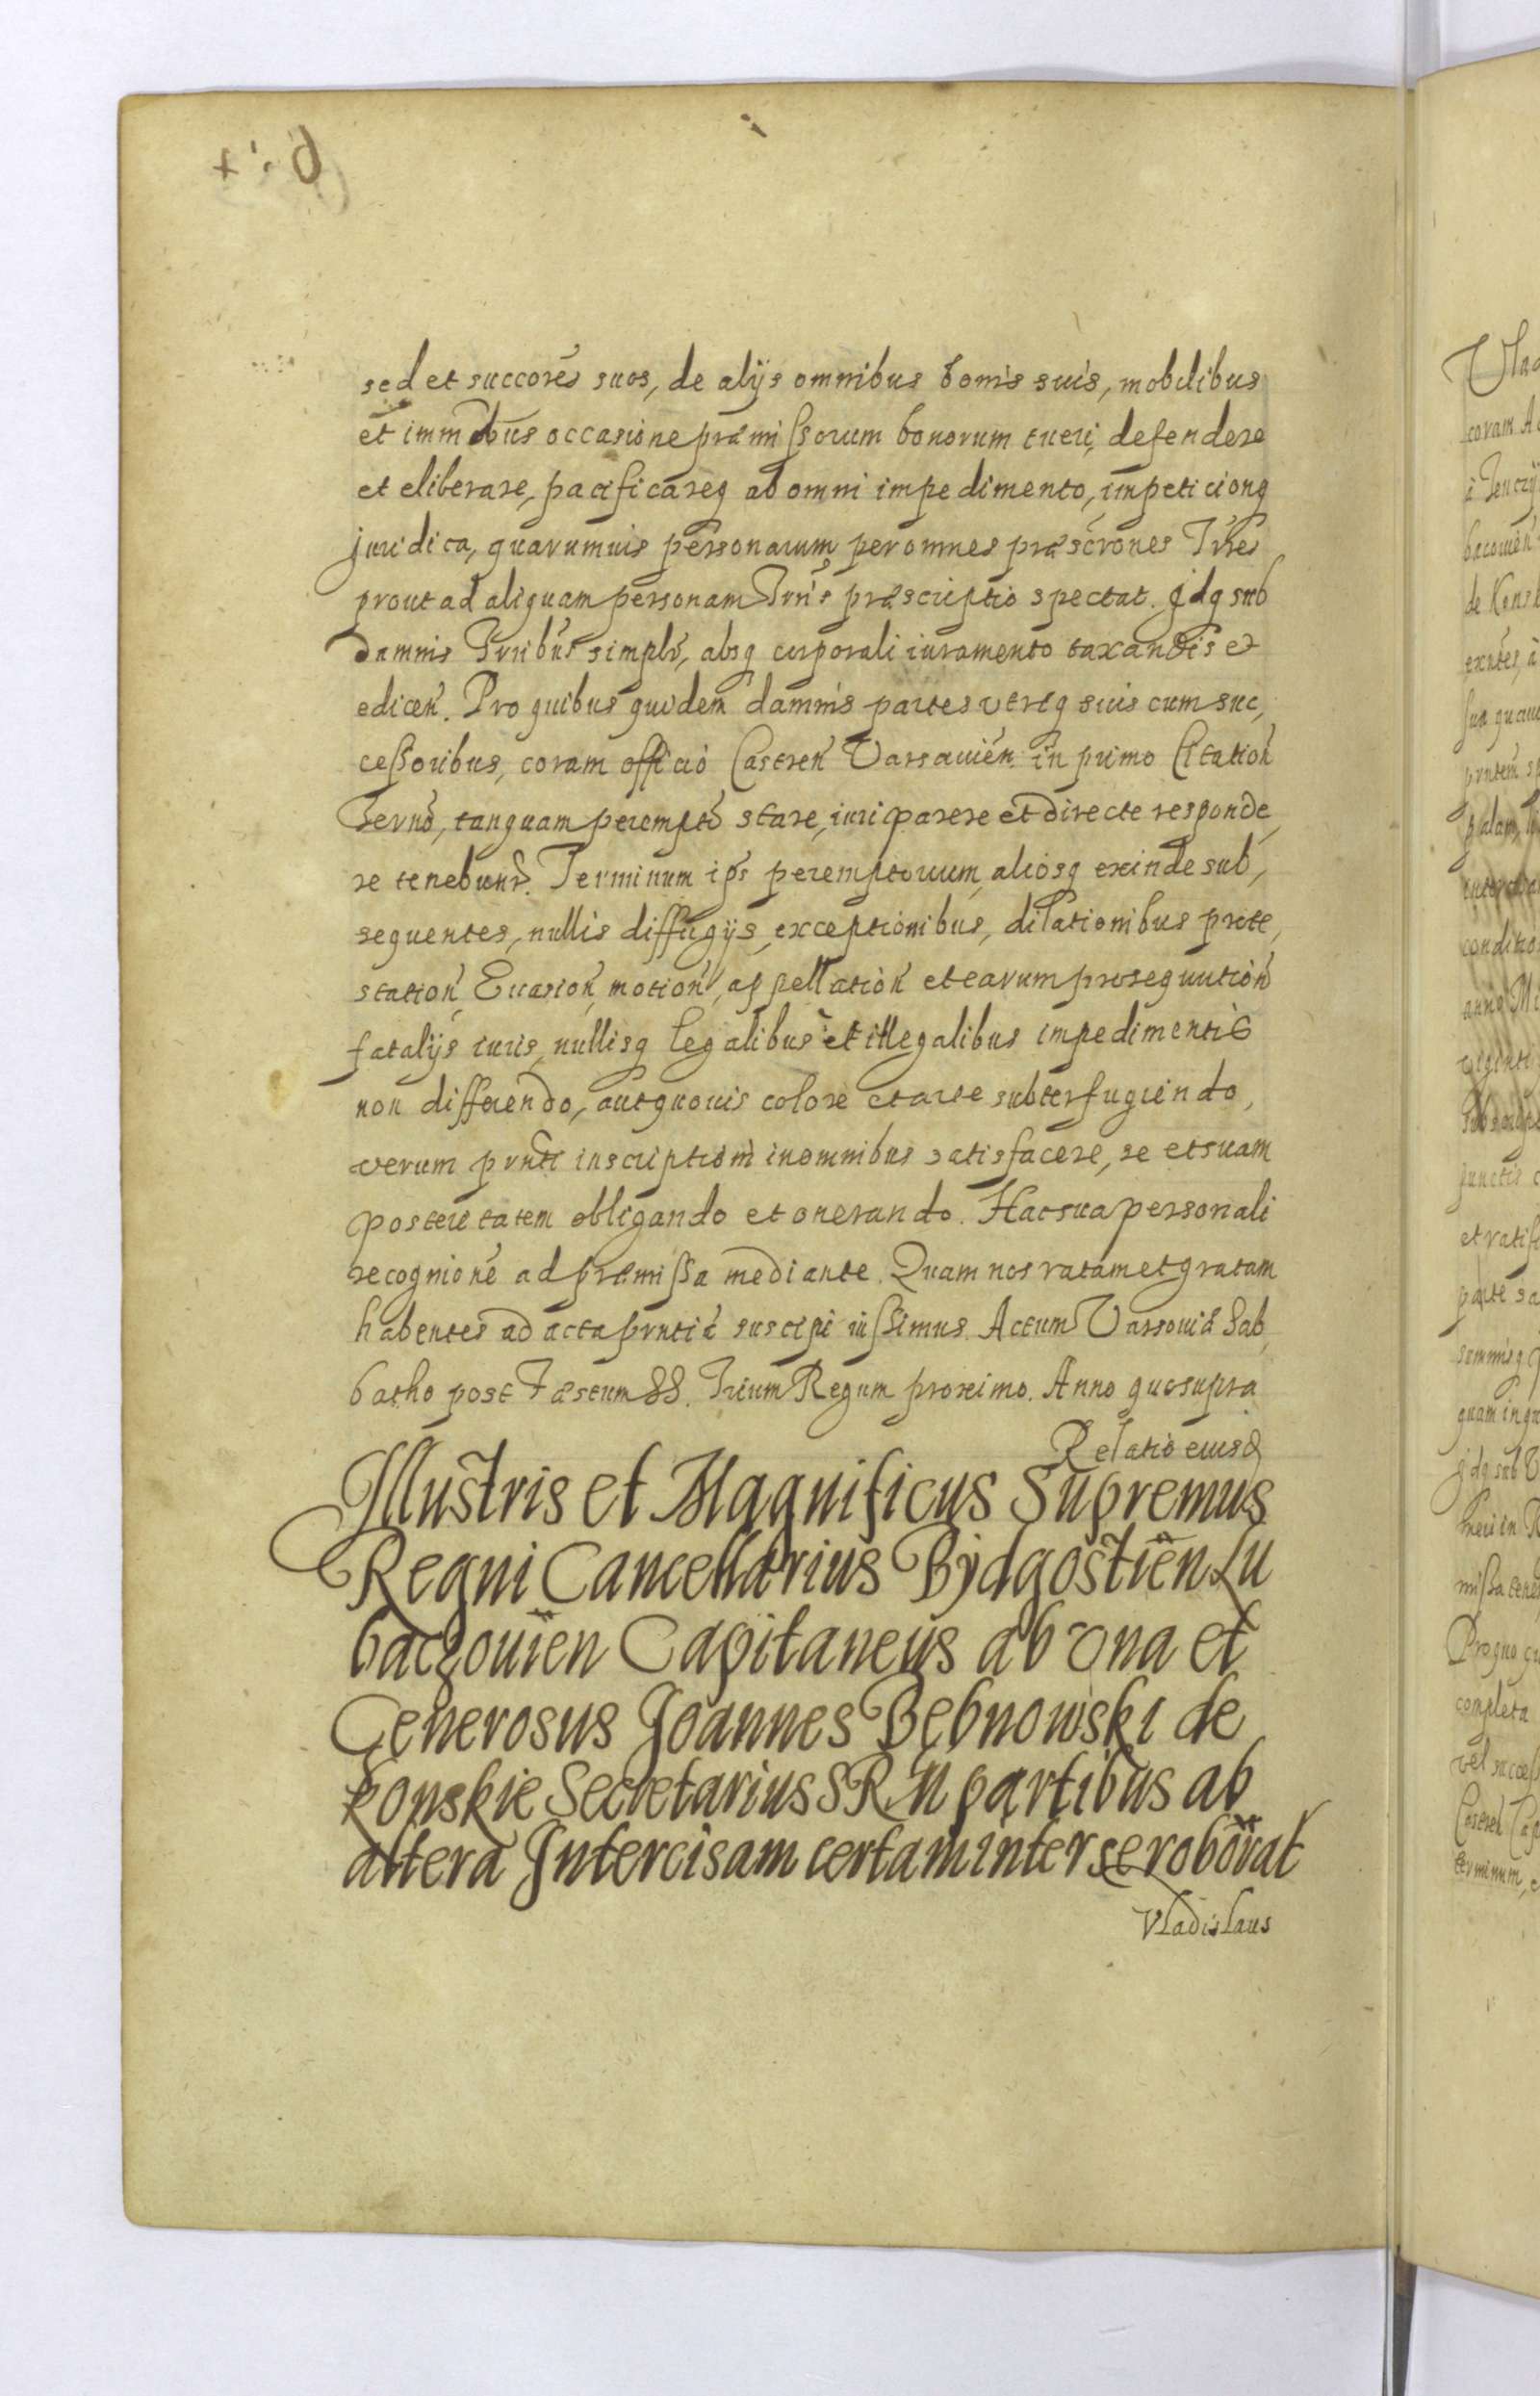 sed et succorés suos, de alÿs omnibus bonis suis, mobilibus
et immobus occasione præmissorum bonorum tueri, defendere
et eliberare, pacificareq ab omni impedimento, impeticionq
juridica, quarumuis personarum per omnes præscrones Trres
prout ad aliquam personam Trris præscriptio spectat. Idq sub
damnis Trribus simplr, absq corporali iuramento taxandis et
edicen. Pro quibus quidem damnis partes vtreq suis cum suc,
cessoribus, coram officio Castren Varsauien. in primo Citation
Termo, tanquam perempto stare, iuri parere et directe responde,
re tenebuntr. Terminum ips peremptorium, aliosq exinde sub,
sequentes, nullis diffugÿs, exceptionibus, dilationibus prote,
station, Euasion, motion, appellation et earum prosequution
fatalÿs iuris, nullisq legalibus et illegalibus impedimentis
non differendo, aut quouis colore et arte subterfugiendo,
verum prnti inscriptioni in omnibus satisfacere, se et suam
posteritatem obligando et onerando. Hac sua personali
recognione ad præmissa mediante. Quam nos ratam et gratam
habentes ad acta prntia suscipi iussimus. Actum Varsouiæ Sab,
batho post Fæstum SS. Trium Regum proximo. Anno quo supra
Relatio eiusd
Illustris et Magnificus Supremus
Regni Cancellarius Bÿdgostien Lu
baczouien Capitaneus ab vna et
Generosus Joannes Bębnowski de
Konskie Secretarius SRM partibus ab
altera Intercisam certam inter se roborat
Vladislaus